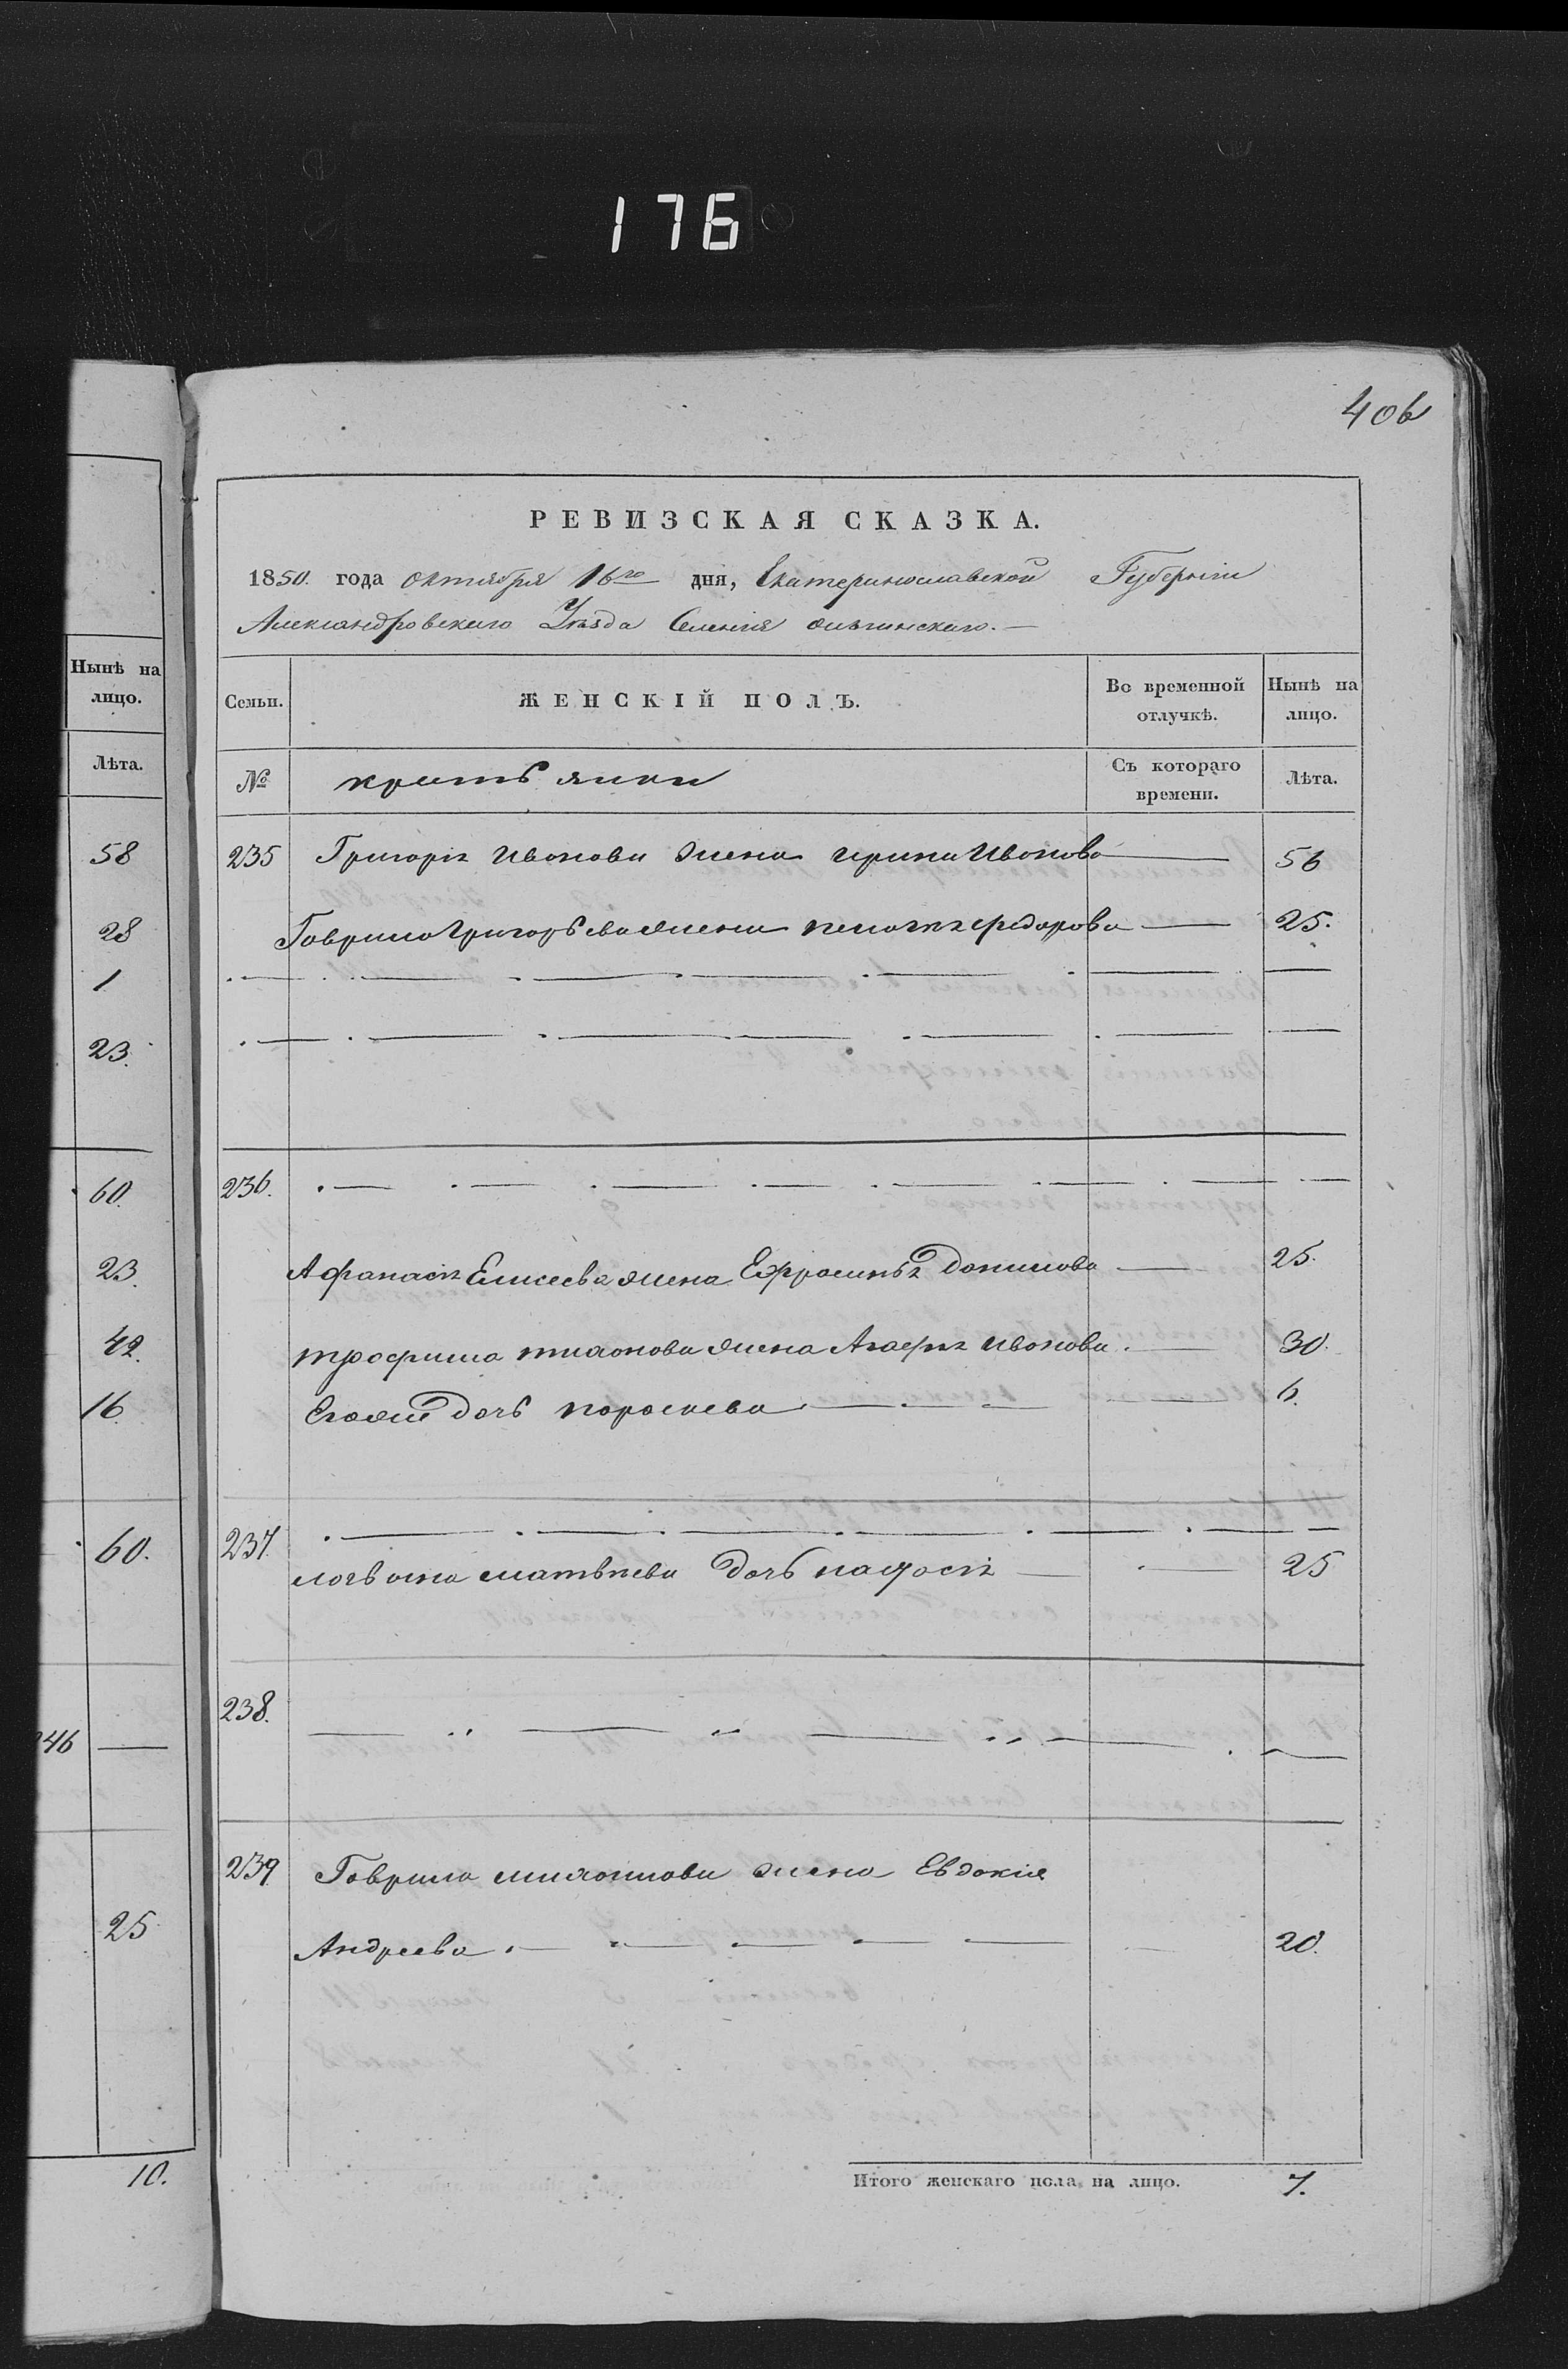 176
406
РЕВИЗСКАЯ СКАЗКА.
1850. года октября 16го дня, Екатеринославской Губерніи
Александровскаго Уезда Селенія ольгинскаго.
Нынѣ на лицо.
Лѣта.
58
28
1
23.
60.
23.
42.
16.
60.
246
25
10.
Семьи. ЖЕНСКІЙ ПОЛЪ. Во временной отлучкѣ. Нынѣ на лицо.
№ Съ котораго времени. Лѣта.
235 Григорія Иванова жена ирина Иванова 56
Гаврила Григорьева жена пелагѣя федорова 25.
236.
Афанасія Елисеева жена Ефросинья данилова 25.
трофима тихонова жена Агафія иванова 30.
Егожъ дочь пораскева 6.
237.
матвѣева дочь 25
238.
239 Гаврила михаилова жена Евдокія
Андреева 20.
Итого женскаго пола на лицо. 7.